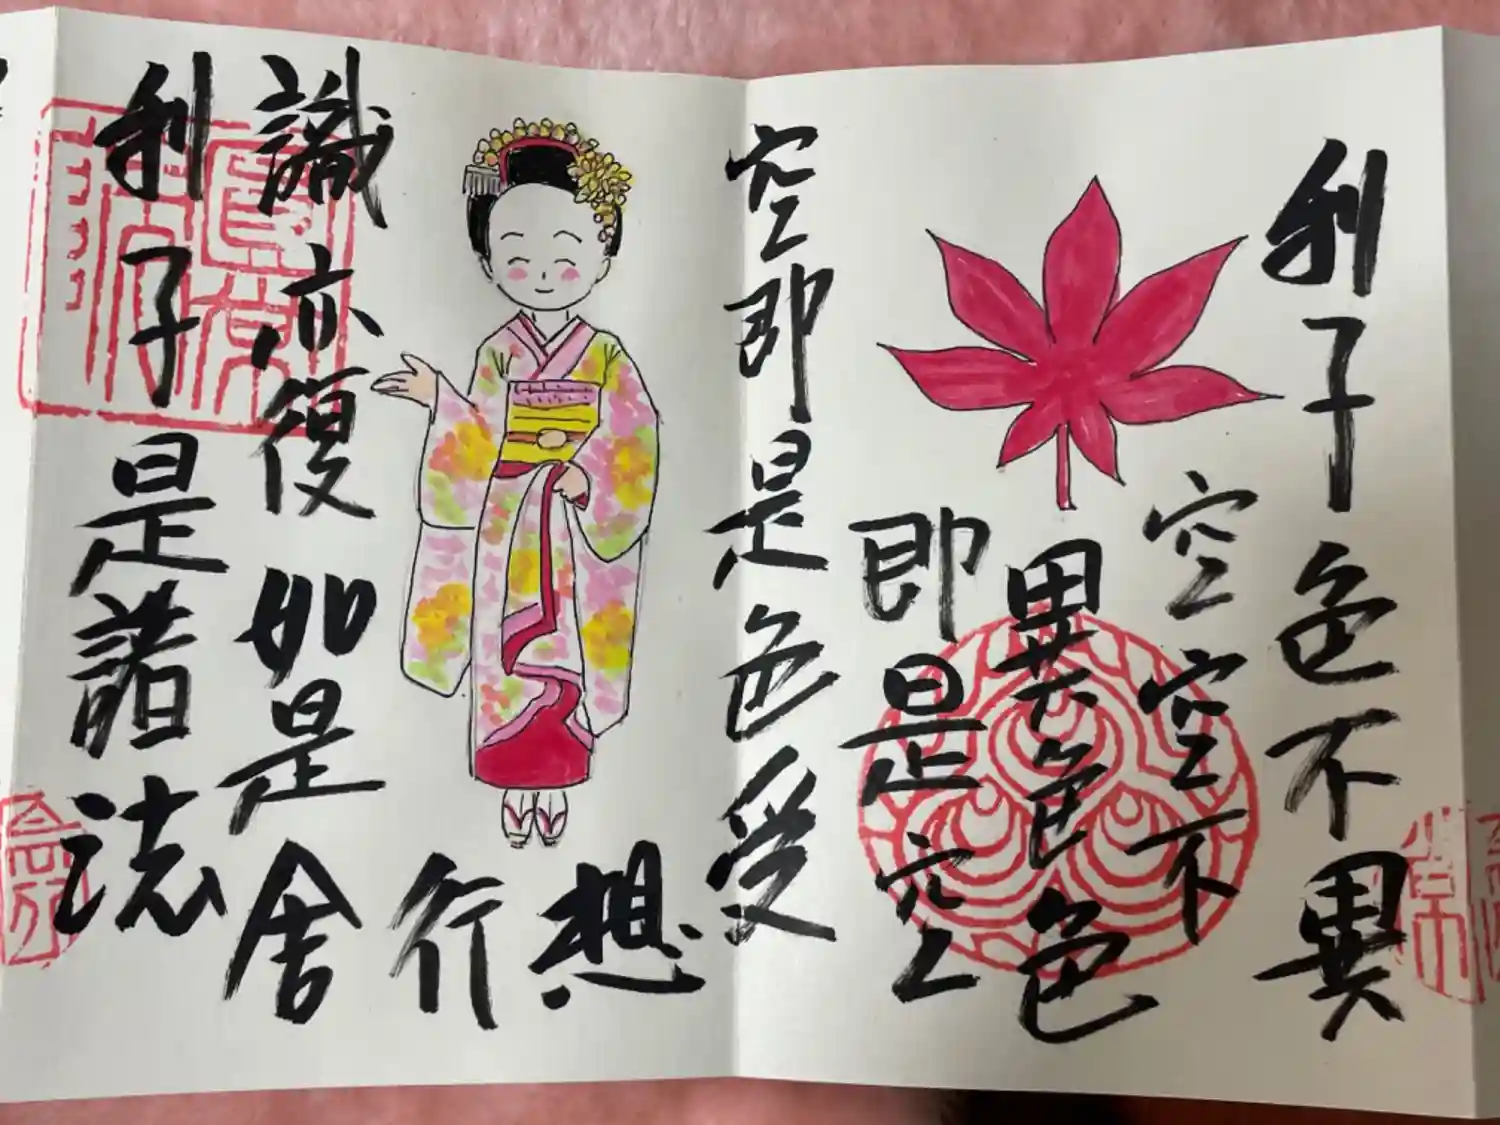 利子色不異
空空不
異色色
即是空
空即是色受
想
行
識亦復如是舎
利子是諸法